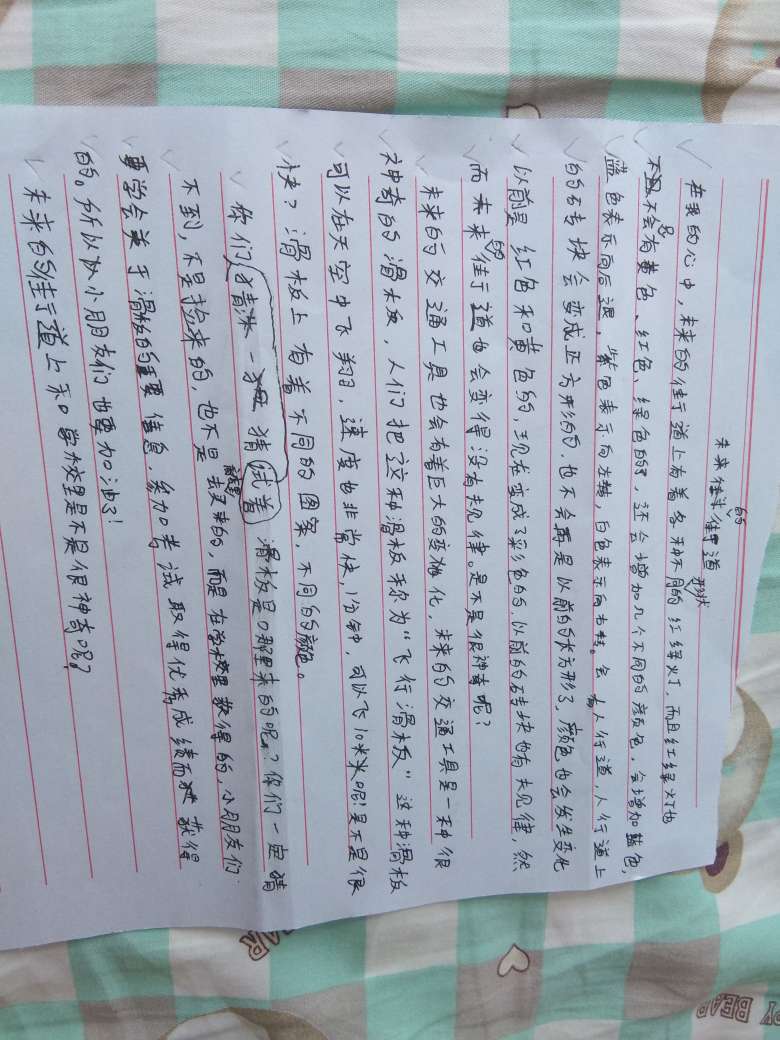 未来的街道
在我的心中，未来的街道上有着各种不同形状的红绿灯，而且红绿灯也
不会只有黄色、红色、绿色的了，还会增加几个不同的颜色，会增加蓝色，
蓝色表示向后退，紫色表示向左转，白色表示向右转。会有人行道，人行道上
的的砖块会变成正方形的，也不会再是以前的长方形了，颜色也会发生变化
以前是红色和黄色的，现在变成了彩色的，以前的砖块也有规律，然
而未来的街道也会变得没有规律。是不是很神奇呢？
未来的交通工具也会有着巨大的变化，未来的交通工具是一种很
神奇的滑板，人们把这种滑板称为“飞行滑板”这种滑板
可以在天空中飞翔，速度也非常快，1分钟，可以飞10米呢！是不是很
快？滑板上有着不同的图案，不同的颜色。
你们猜一猜试着滑板是哪里来的呢？你们一定猜
不到，不是捡来的，也不是买来的，而是在学校里教得的，小朋友们
要学会关于滑板的重要信息，参加考试取得优秀成绩而获得
的。所以小朋友们也要加油了！
未来的街道上和学校里是不是很神奇呢？
BEAR
PY BEAR